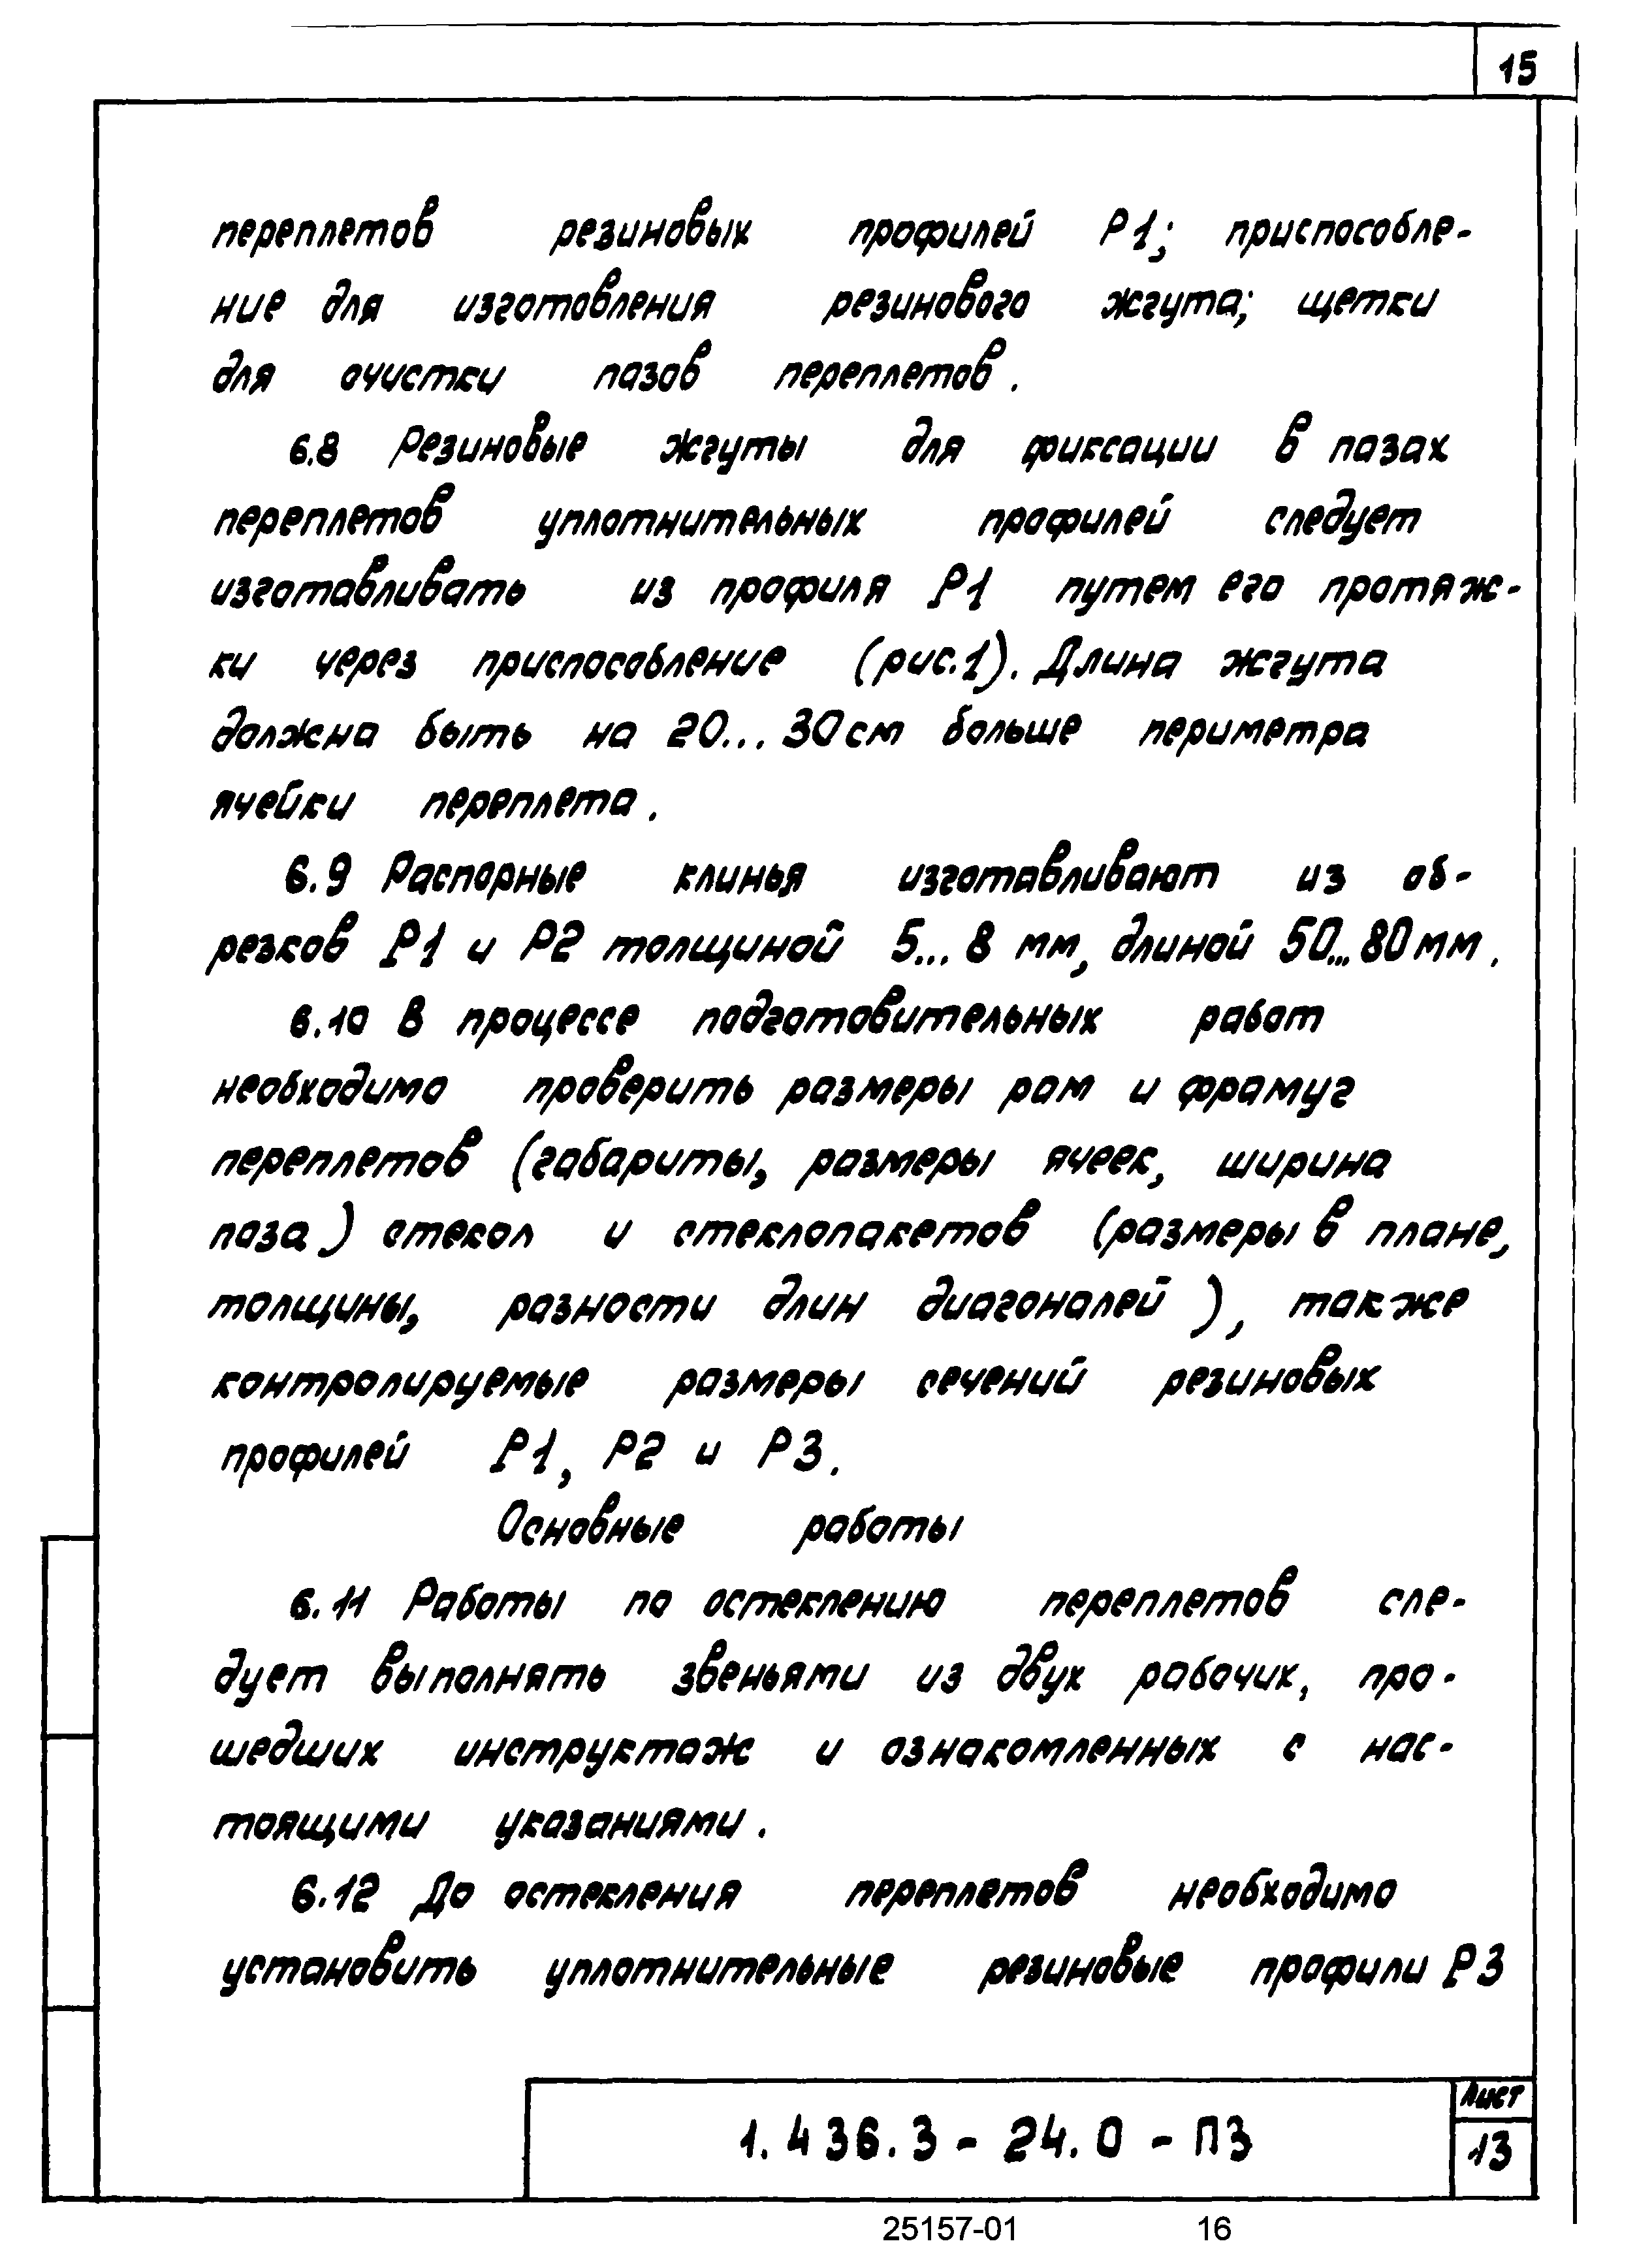 15
переплетов резиновых профилей Р1; приспособле-
ние для изготовления резинового жгута; щетки
для очистки пазов переплетов.
6.8 Резиновые жгуты для фиксации в пазах
переплетов уплотнительных профилей следует
изготавливать из профиля Р1 путем его протяж-
ки через приспособление (рис.1). Длина жгута
должна быть на 20...30см больше периметра
ячейки переплета.
6.9 Распорные клинья изготавливают из об-
резков Р1 и Р2 толщиной 5...8 мм, длиной 50...80мм.
6.10 В процессе подготовительных работ
необходимо проверить размеры рам и фрамуг
переплетов (габариты, размеры ячеек, ширина
паза) стекол и стеклопакетов (размеры в плане,
толщины, разности длин диагоналей), также
контролируемые размеры сечений резиновых
профилей Р1, Р2 и Р3.
Основные работы
6.11 Работы по остеклению переплетов сле-
дует выполнять звеньями из двух рабочих, про-
шедших инструктаж и ознакомленных с нас-
тоящими указаниями.
6.12 До остекления переплетов необходимо
установить уплотнительные резиновые профили Р3
1.436.3-24.0-ПЗ
Лист
13
25157-01 16